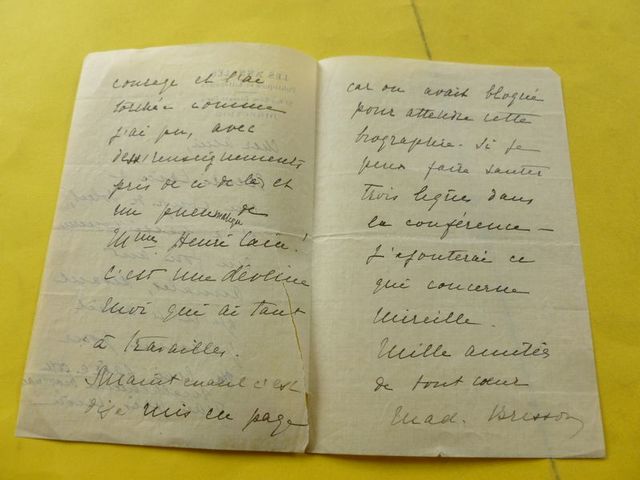 courage et l'ai
torchée comme
j'ai pu, avec
des renseignements
pris de ci de là et
un pneumatique de
Mme Henri Cain!
c'est une déveine
moi qui ai tant
à travailler.
Maintenant c'est
déjà mis en page
car on avait bloqué
pour attendre cette
biographie. Si je
peux faire sauter
trois lignes dans
la conférence —
J'ajouterai ce
qui concerne
Mireille.
Mille amitiés
de tout cœur
Mad. Brisson